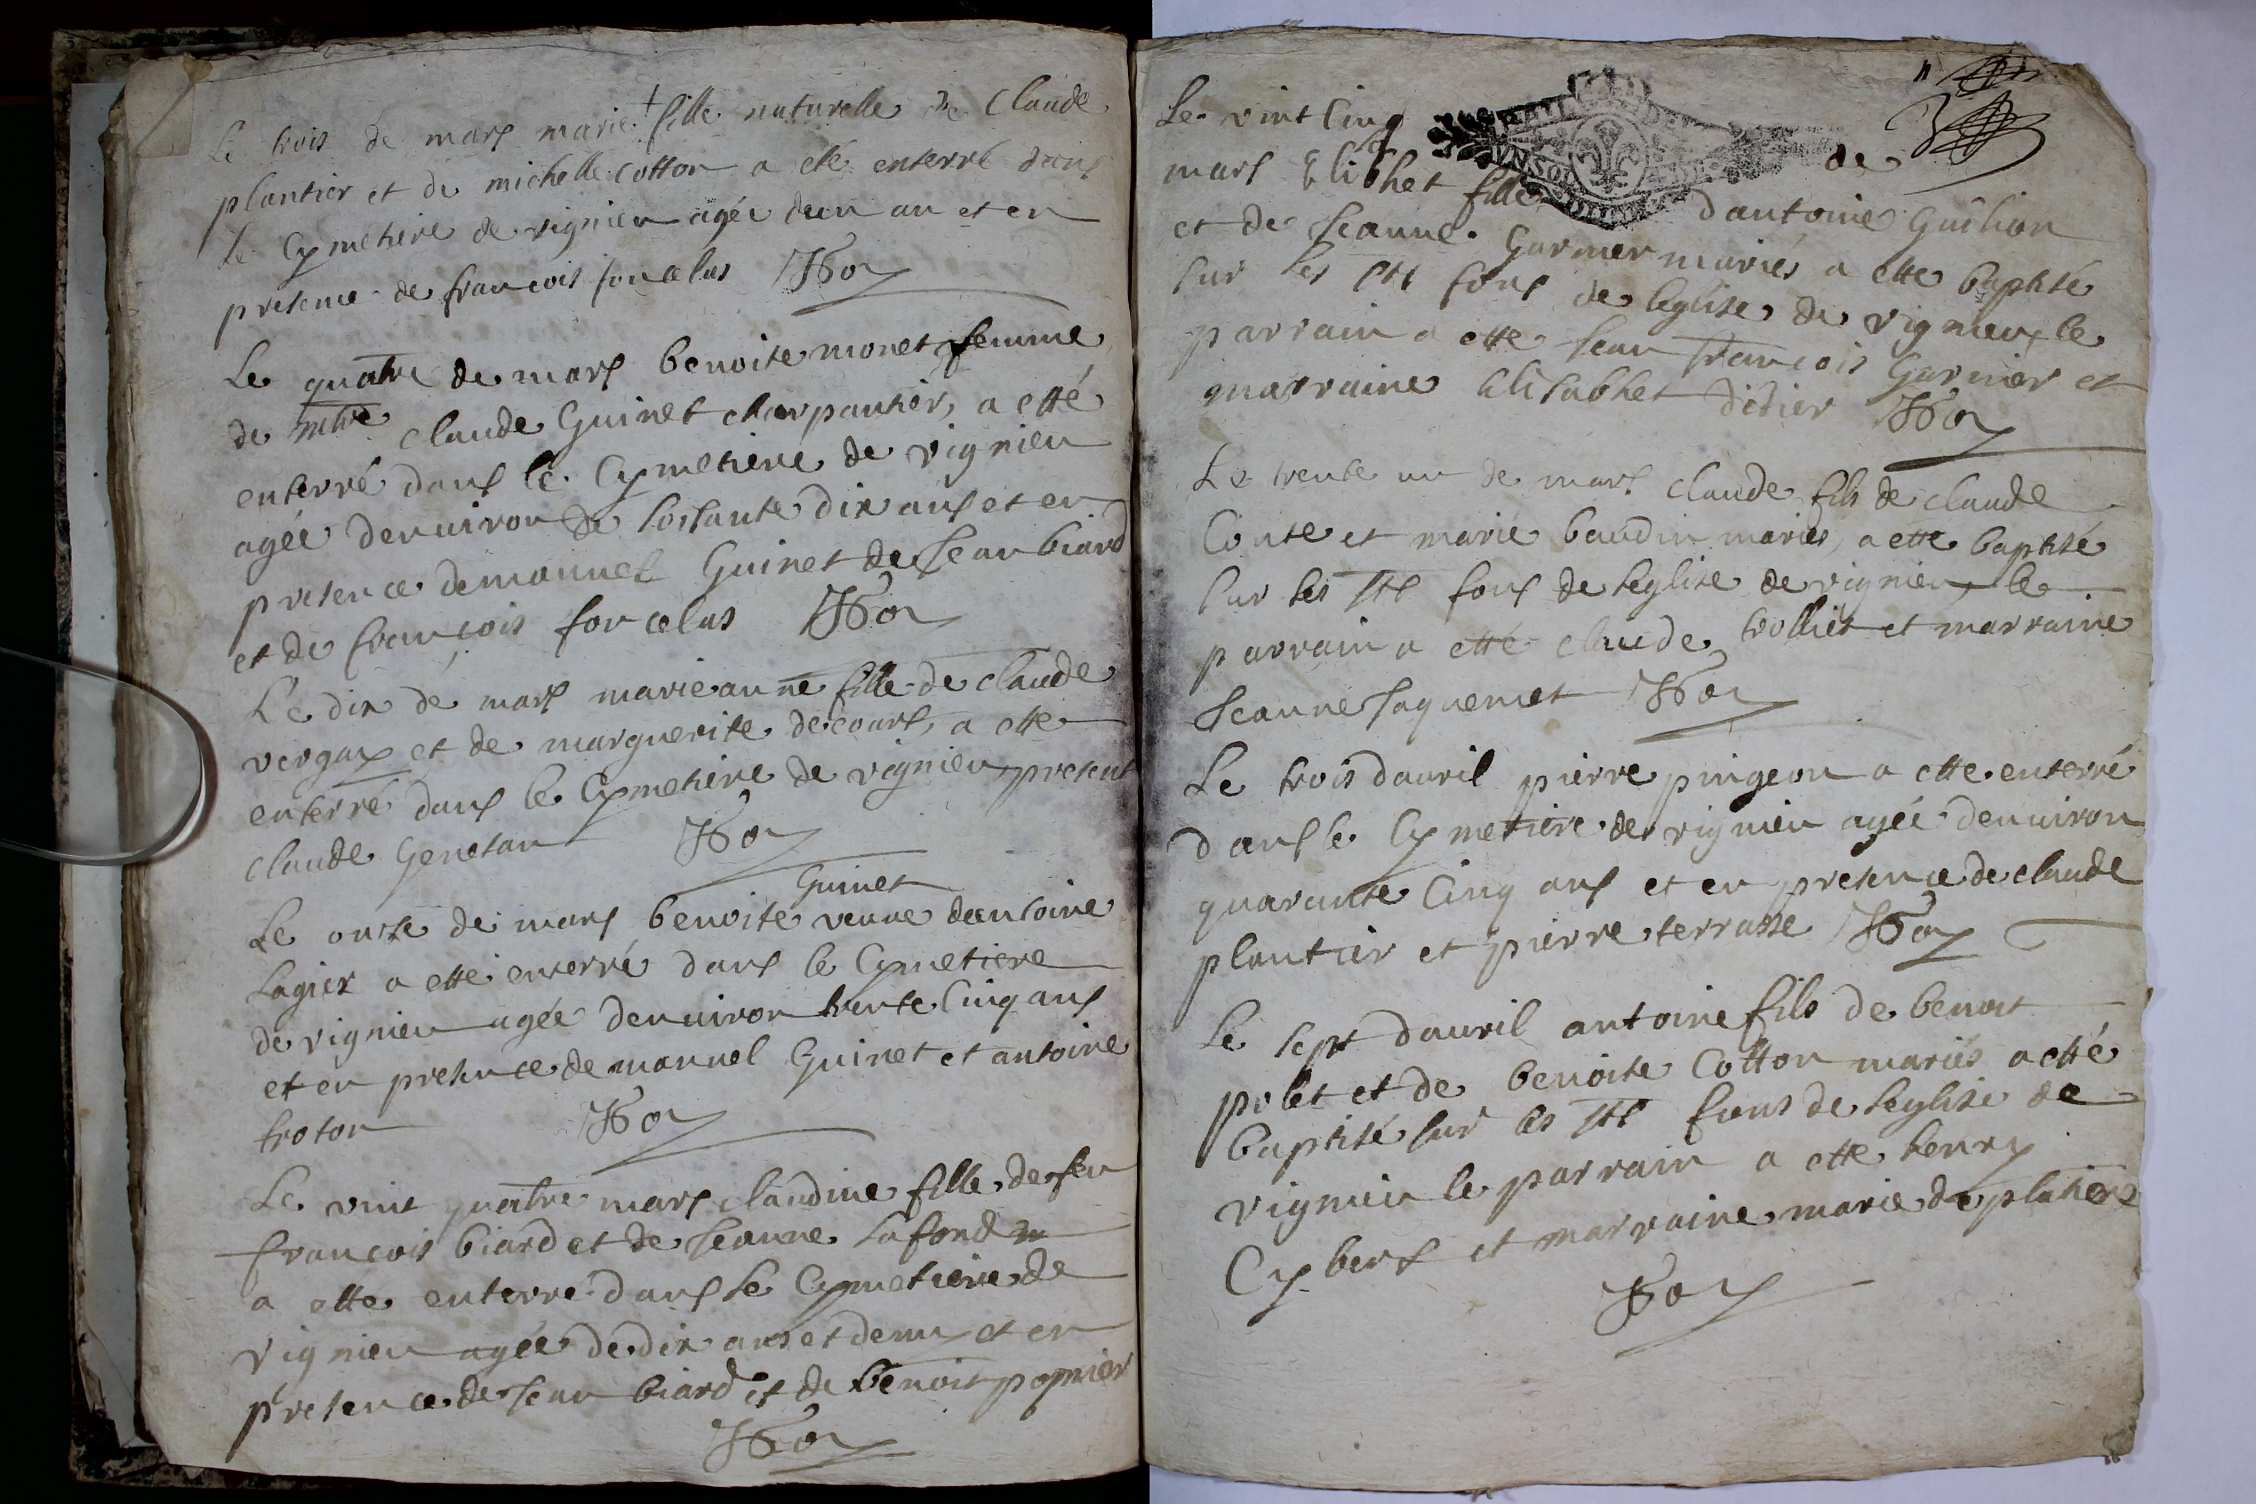 Le trois de mars marie + fille naturelle de Claude
plantier et de michelle cotton a eté enterré dans
le Cymetiere de vignieu agée deun an et en
presence de francois foncelas
Le quatre de mars benoite monet femme
de mtre claude Guinet charpantier, a etté
enterré dans le Cymetiere de vignieu
agée denuiron de soisante dix ans et en
presence demanuel Guinet de Jean biard
et de francois foncelas
Le dix de mars marieanne fille de claude
vergax et de marguerite decours, a ette
enterré dans le Cymetiere de vignieu, present
claude Genetan
Guinet
Le onse de mars benoite veuue deantoine
Lagier a etté enterré dans le Cymetiere
de vignieu agée denuiron trente Cinq ans
et en presence de manuel Guinet et antoine
troton
Le vint quatre mars claudine fille de feu
francois biard et de Jeanne Lafond
a ette enterre dans Le Cymetiere de
vignieu agée de dix ans et demy et en
presence de Jean biard et de benoit pognier
Le vint Cinq
de
mars Elisbhet fille dantoine Guilion
et de Jeanne Garnier mariés a ette baptisé
sur les sts fons de leglise de vignieu, le
parrain a ette Jean francois Garnier et
marraine Elisabhet didier
Le trente un de mars claude fils de claude
Conte et marie baudin mariés, a ette baptisé
sur les sts fons de leglise de vignieu le
parrain a etté claude trolliet et marraine
Jeanne Jaquemet
Le trois dauril pierre pingeon a ette enterré
dans le Cymetiere de vignieu agée denuiron
quarante Cinq ans et en presence de claude
plantier et pierre terrasse
Le sept dauril antoine fils de benoit
polet et de benoite Cotton mariés a etté
baptisé sur les sts fons de leglise de
vignieu le parrain a ette henry
Cybert et marraine marie deplatiere